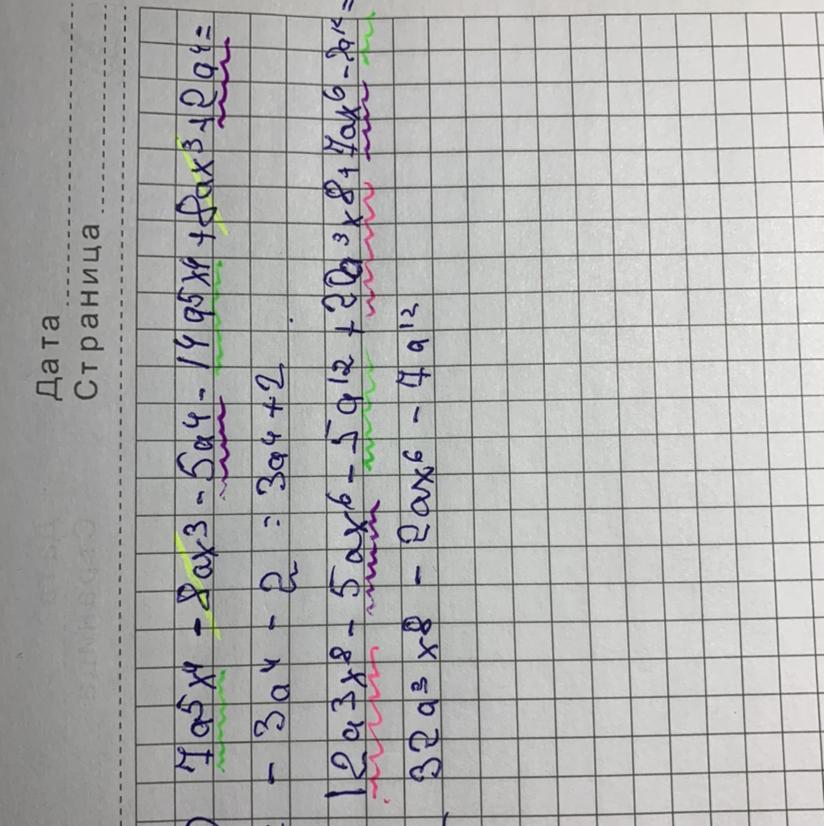 Дата
Страница
7a⁵x⁴ - 8ax³ - 5a⁴ - 14a⁵x⁴ + 8ax³ + 2a⁴ =
- 3a⁴ - 2 = 3a⁴ + 2
12a³x⁸ - 5ax⁶ - 5a¹² + 20a³x⁸ + 7ax⁶ - 2a¹² =
32a³x⁸ - 2ax⁶ - 7a¹²